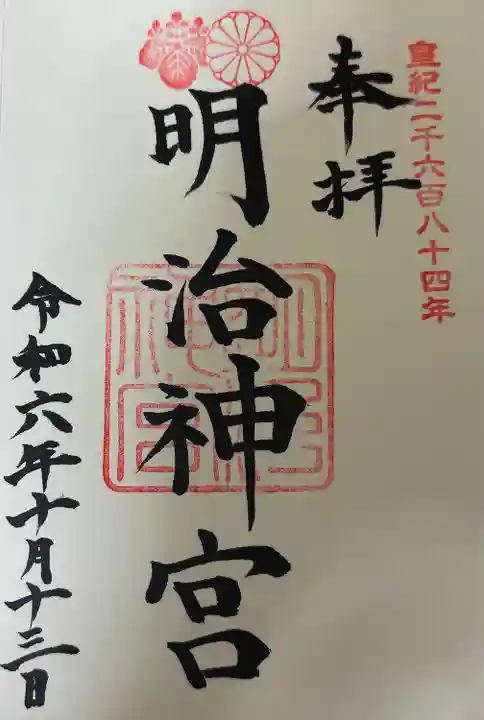 皇紀二千六百八十四年
奉拝
明治神宮
令和六年十月十三日
明治神宮